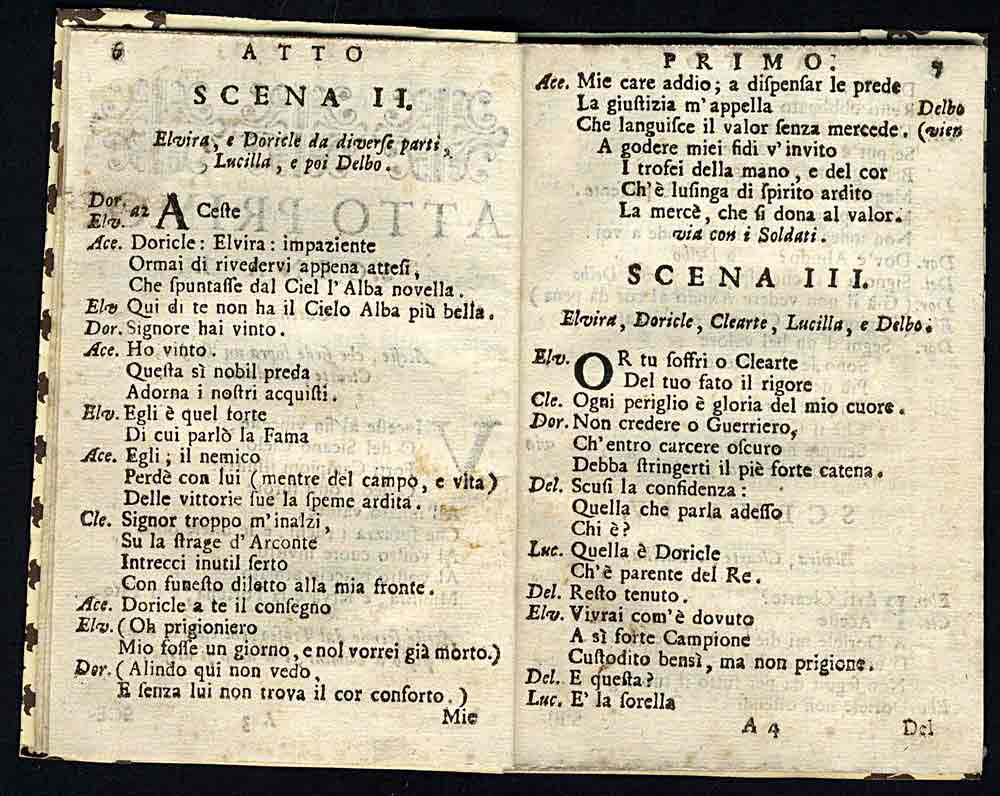 6 ATTO
SCENA II.
Elvira, e Doricle da diverse parti,
Lucilla, e poi Delbo.
Dor.
Elv. a2 ACeste
Ace. Doricle: Elvira: impaziente
Ormai di rivedervi appena attesi,
Che spuntasse dal Ciel l'Alba novella.
Elv Qui di te non ha il Cielo Alba più bella.
Dor. Signore hai vinto.
Ace. Ho vinto.
Questa sì nobil preda
Adorna i nostri acquisti.
Elv. Egli è quel forte
Di cui parlò la Fama
Ace. Egli; il nemico
Perdè con lui (mentre del campo, e vita)
Delle vittorie sue la speme ardita.
Cle. Signor troppo m'inalzi,
Su la strage d'Arconte
Intrecci inutil serto
Con funesto diletto alla mia fronte.
Ace. Doricle a te il consegno
Elv. (Oh prigioniero
Mio fosse un giorno, e nol vorrei già morto.)
Dor. (Alindo qui non vedo,
E senza lui non trova il cor conforto.)
A 3 Mie
PRIMO. 7
Ace. Mie care addio; a dispensar le prede
La giustizia m'appella Delbo
Che languisce il valor senza mercede. (vien
A godere miei fidi v'invito
I trofei della mano, e del cor
Ch'è lusinga di spirito ardito
La mercè, che si dona al valor.
via con i Soldati.
SCENA III.
Elvira, Doricle, Clearte, Lucilla, e Delbo.
Elv. OR tu soffri o Clearte
Del tuo fato il rigore
Cle. Ogni periglio è gloria del mio cuore.
Dor. Non credere o Guerriero,
Ch'entro carcere oscuro
Debba stringerti il piè forte catena.
Del. Scusi la confidenza:
Quella che parla adesso
Chi è?
Luc. Quella è Doricle
Ch'è parente del Re.
Del. Resto tenuto.
Elv. Vivrai com'è dovuto
A sì forte Campione
Custodito bensì, ma non prigione.
Del. E questa?
Luc. E' la sorella
A 4 Del